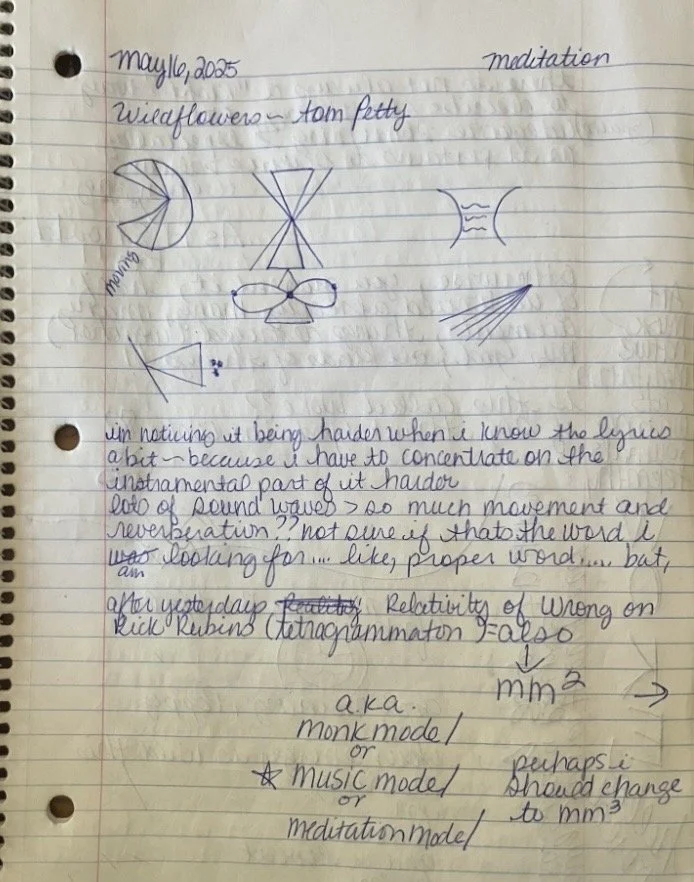 May 16, 2025
meditation
Wildflowers ~ tom Petty
moving
im noticing it being harder when i know the lyrics
a bit - because i have to concentrate on the
instramental part of it harder
lots of sound waves > so much movement and
reverberation?? not sure if thats the word i
was looking for.... like, proper word..... but,
am
after yesterdays Reality Relativity of Wrong on
Rick Rubins (tetragrammaton) = also
↓
mm² →
a.k.a.
monk mode/
or
☆ music mode/
or
meditation mode/
perhaps i
should change
to mm³